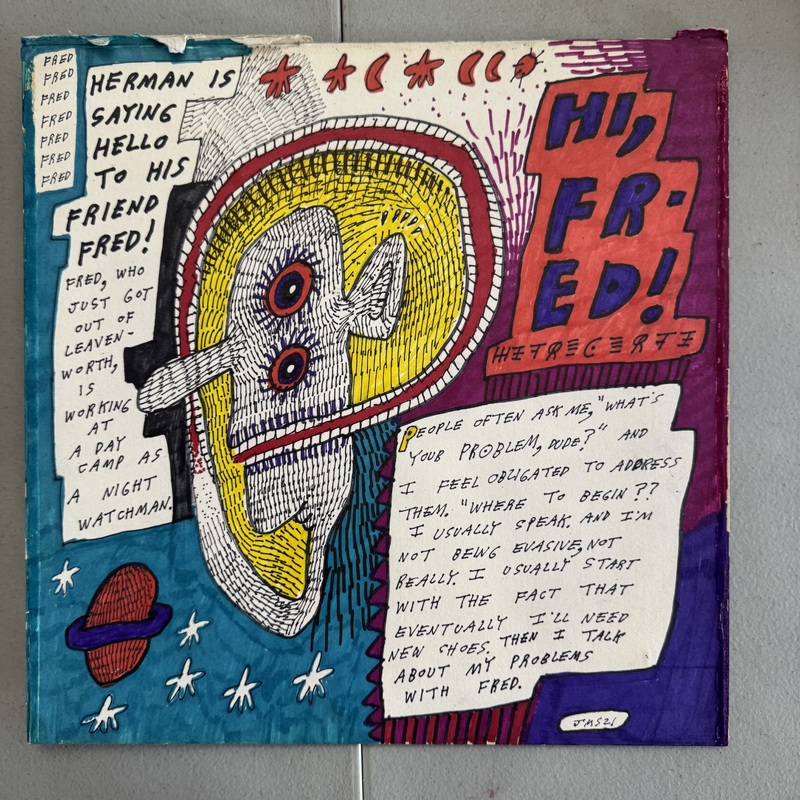 FRED
FRED
FRED
FRED
FRED
FRED
FRED
HERMAN IS
SAYING
HELLO
TO HIS
FRIEND
FRED!
FRED, WHO
JUST GOT
OUT OF
LEAVEN-
WORTH,
IS
WORKING
AT
A DAY
CAMP AS
A NIGHT
WATCHMAN.
HI,
FR-
ED!
PEOPLE OFTEN ASK ME, "WHAT'S
YOUR PROBLEM, DUDE?" AND
I FEEL OBLIGATED TO ADDRESS
THEM. "WHERE TO BEGIN??
I USUALLY SPEAK. AND I'M
NOT BEING EVASIVE, NOT
REALLY. I USUALLY START
WITH THE FACT THAT
EVENTUALLY I'LL NEED
NEW SHOES. THEN I TALK
ABOUT MY PROBLEMS
WITH FRED.
JMS21